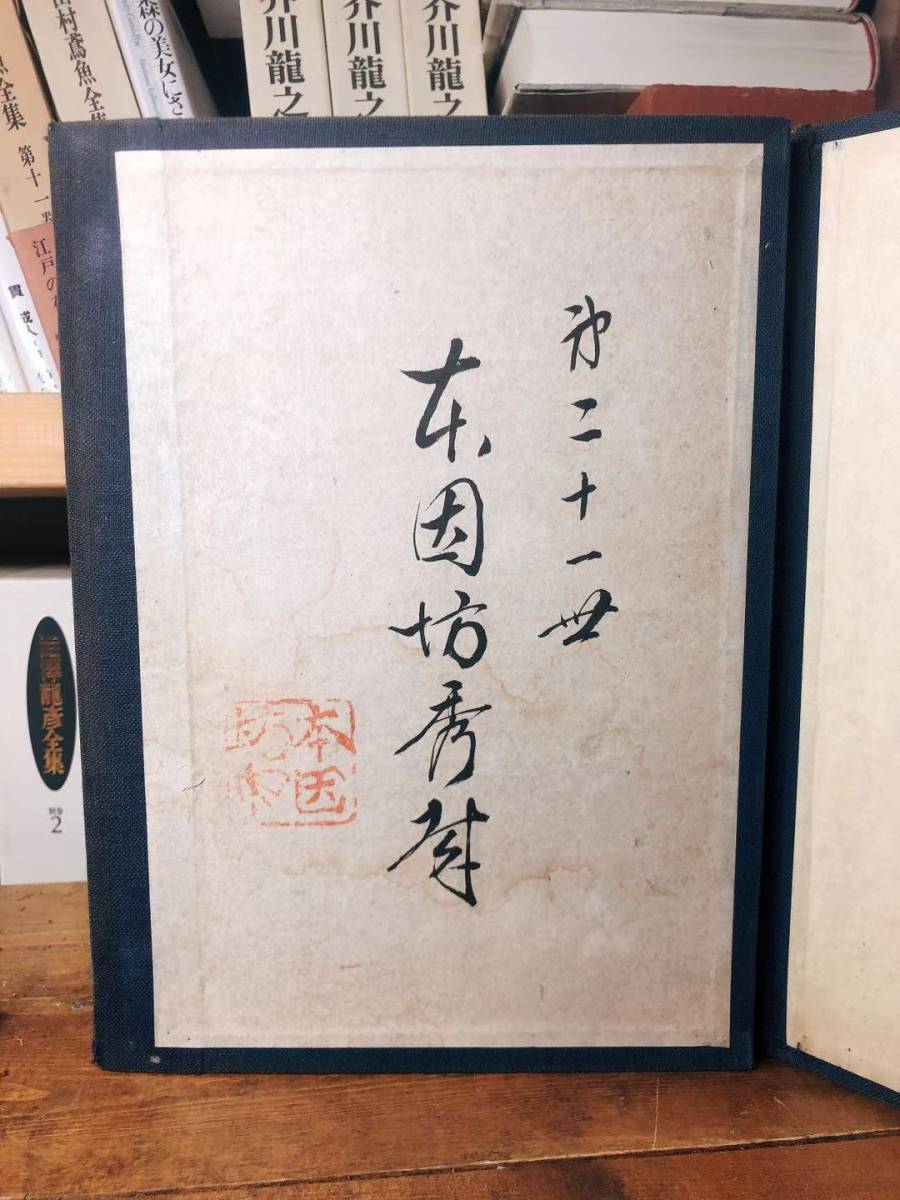 第二十一世
本因坊秀哉
本因
坊
芥川龍之
芥川龍之
芥川龍之
森の美女にさ
田村鳶魚全集
魚全集 第十一
江戸の
貫 成人
澁澤龍彦全集
別巻
2